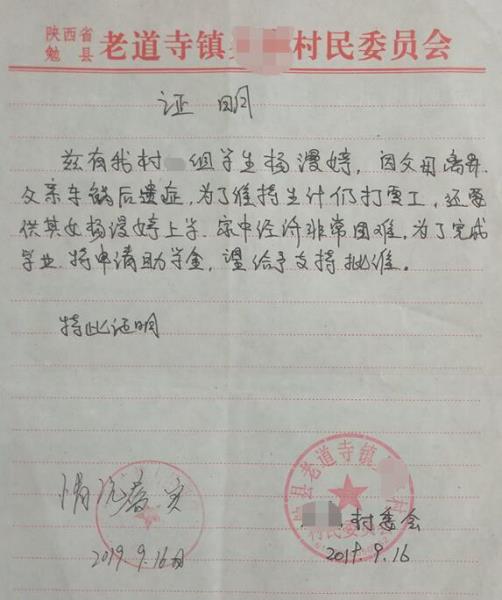 陕西省
勉县
老道寺镇 村民委员会
证明
兹有我村 组学生杨漫婷，因父母离异
父亲车祸后遗症，为了维持生计仍打零工，还要
供其女杨漫婷上学.家中经济非常困难，为了完成
学业.特申请助学金，望给予支持批准。
特此证明
情况属实
2019.9.16日
县老道寺镇
村民委员会
村委会
2019.9.16